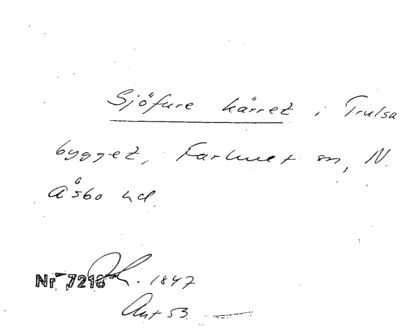 Sjöfure kärret i Trulsa
bygget, Farhult sn, N.
Åsbo hd.
Nr 7218
1847
Ant 53